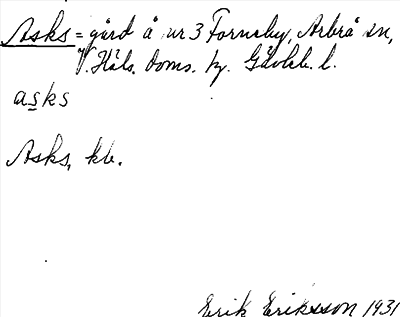 Asks = gård å nr 3 Forneby, Arbrå sn,
V. Häls. doms. hg. Gävleb. l.
asks
Asks, kb.
Erik Eriksson 1931